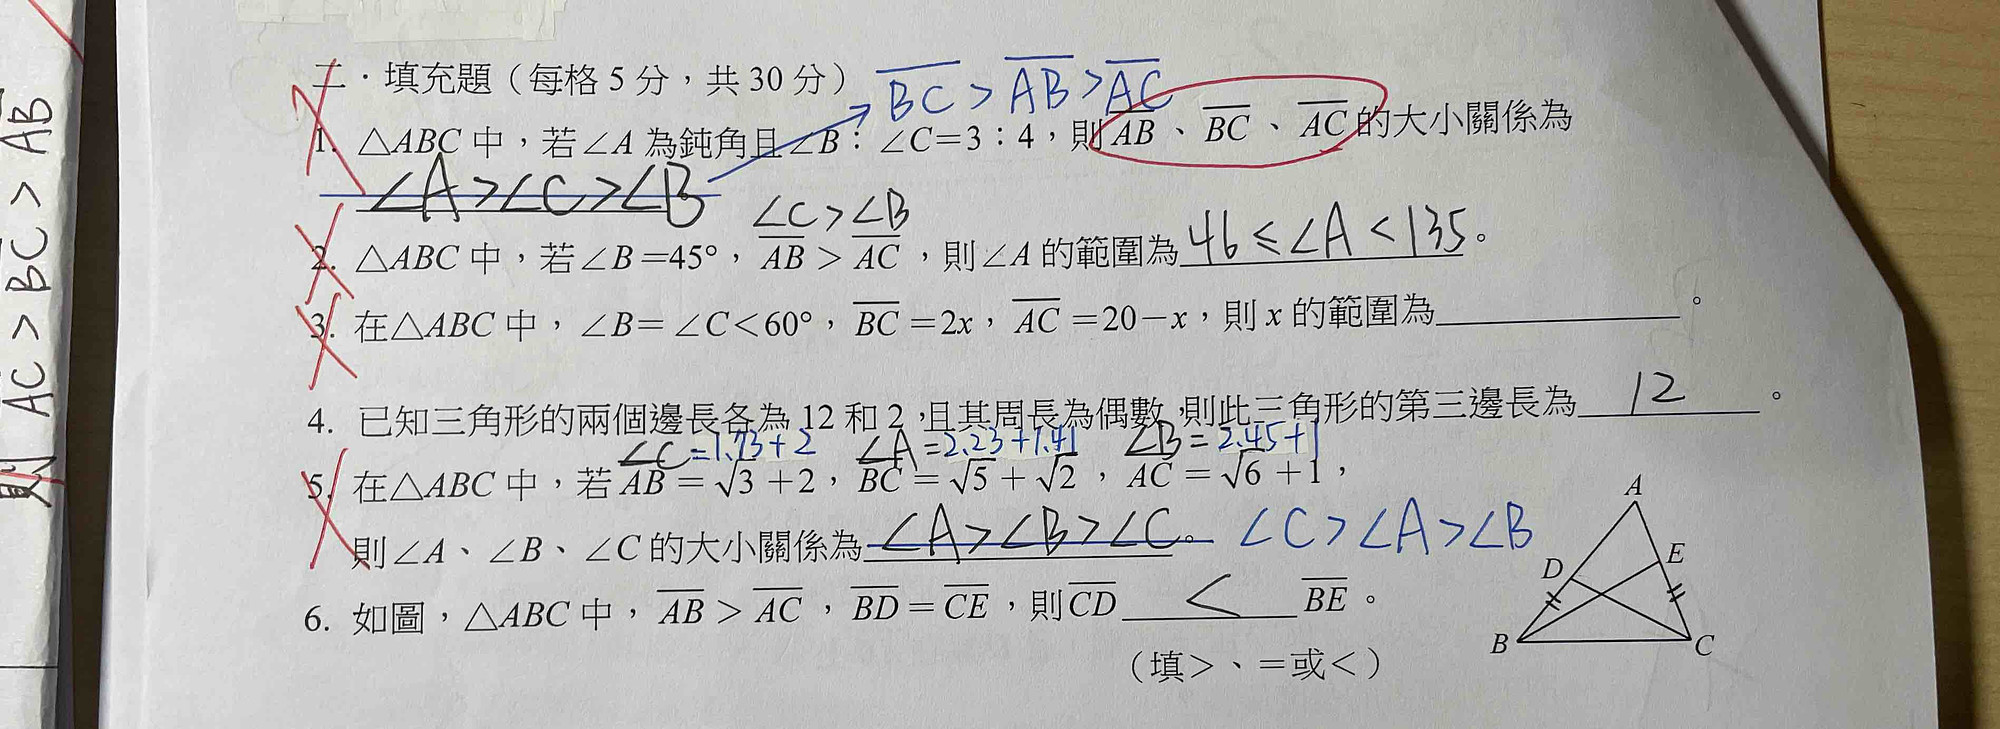 則 AC > BC > AB
二．填充題（每格 5 分，共 30 分）
BC > AB > AC
1. △ABC 中，若∠A 為鈍角且∠B：∠C＝3：4，則 AB、BC、AC 的大小關係為
∠A > ∠C > ∠B
∠C > ∠B
2. △ABC 中，若∠B＝45°，AB＞AC，則∠A 的範圍為 46 ≤ ∠A < 135。
3. 在△ABC 中，∠B＝∠C＜60°，BC＝2x，AC＝20－x，則 x 的範圍為＿＿＿＿。
4. 已知三角形的兩個邊長各為 12 和 2，且其周長為偶數，則此三角形的第三邊長為 12 。
∠C = 1.73+2 ∠A = 2.23+1.41 ∠B = 2.45+1
5. 在△ABC 中，若 AB＝√3＋2，BC＝√5＋√2，AC＝√6＋1，
則∠A、∠B、∠C 的大小關係為 ∠A > ∠B > ∠C。 ∠C > ∠A > ∠B
6. 如圖，△ABC 中，AB＞AC，BD＝CE，則 CD < BE。
（填＞、＝或＜）
A
D E
B C